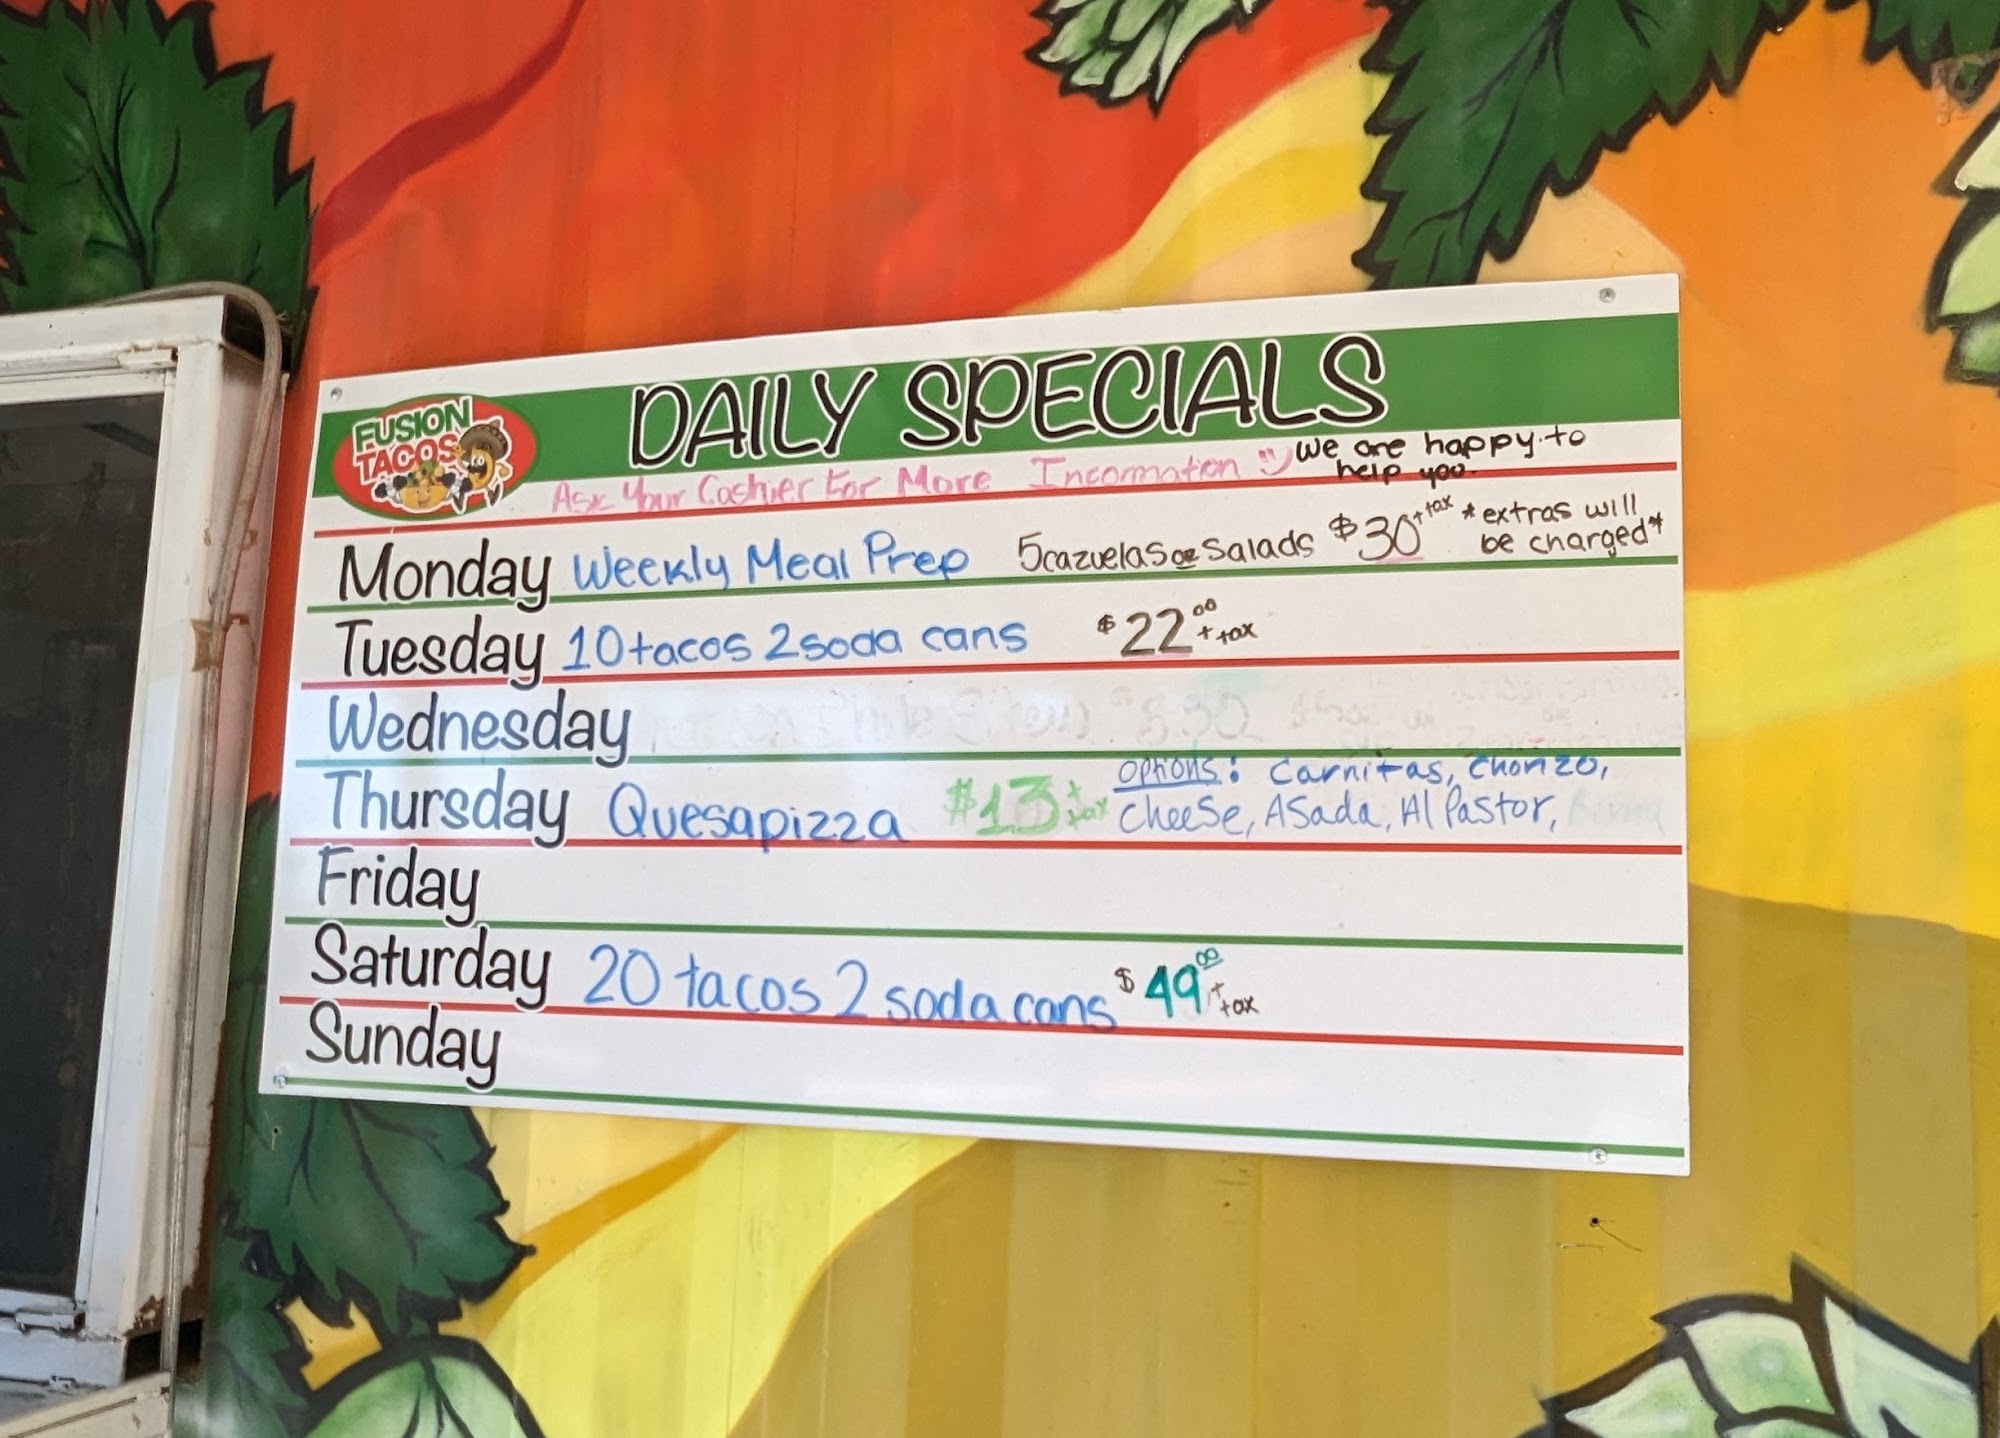 FUSION
TACOS
DAILY SPECIALS
Ask Your Cashier For More Incormation We are happy to
help you.
Monday Weekly Meal Prep 5 cazuelas or Salads $30 + tax *extras will
be charged*
Tuesday 10 tacos 2 soda cans $22.00 + tax
Wednesday
Thursday Quesapizza $13 + tax Options: Carnitas, Chorizo,
Cheese, Asada, Al Pastor,
Friday
Saturday 20 tacos 2 soda cans $49.00 + tax
Sunday